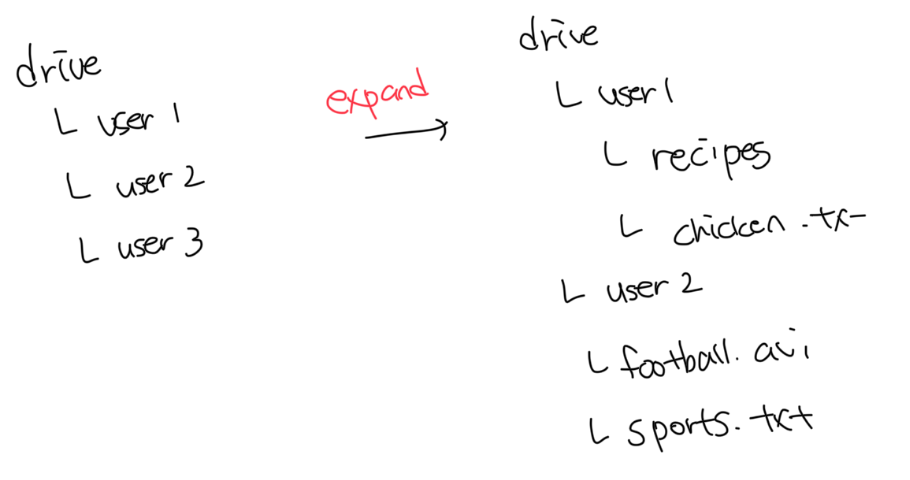 drive
└ user 1
└ user 2
└ user 3
expand
drive
└ user 1
└ recipes
└ chicken.tx-
└ user 2
└ football.avi
└ sports.txt